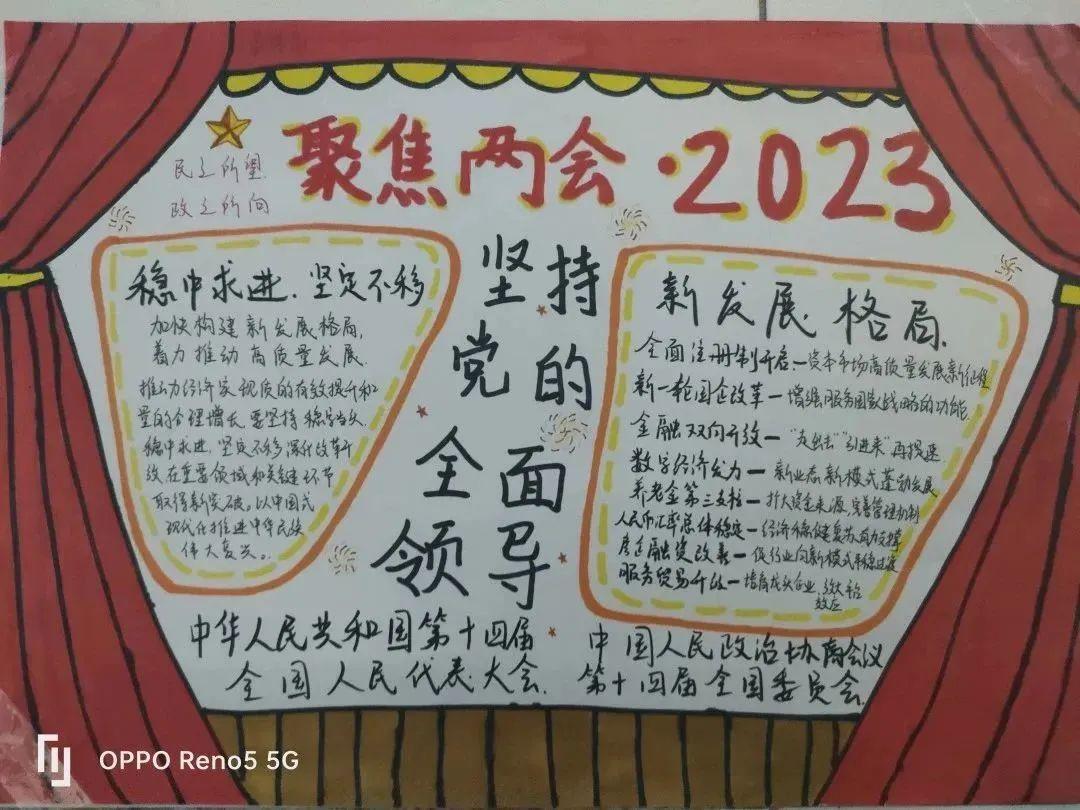 聚焦两会·2023
民之所望
政之所向
稳中求进、坚定不移
加快构建新发展格局,
着力推动高质量发展.
推动经济实现质的有效提升和
量的合理增长,要坚持稳字当头、
稳中求进,坚定不移深化改革开
放,在重要领域和关键环节
取得新突破。以中国式
现代化推进中华民族
伟大复兴。
坚持
党的
全面
领导
新发展格局.
全面注册制开启—资本市场高质量发展新征程
新一轮国企改革—增强服务国家战略的功能.
金融双向开放—“走出去”“引进来”再提速
数字经济发力—新业态新模式蓬勃发展
养老金第三支柱—扩大资金来源,完善管理机制
人民币汇率总体稳定—经济稳健复苏有力支撑
房企融资改善—促行业向新模式平稳过渡
服务贸易开放—培育龙头企业,
效应
中华人民共和国第十四届
全国人民代表大会.
中国人民政治协商会议
第十四届全国委员会.
OPPO Reno5 5G